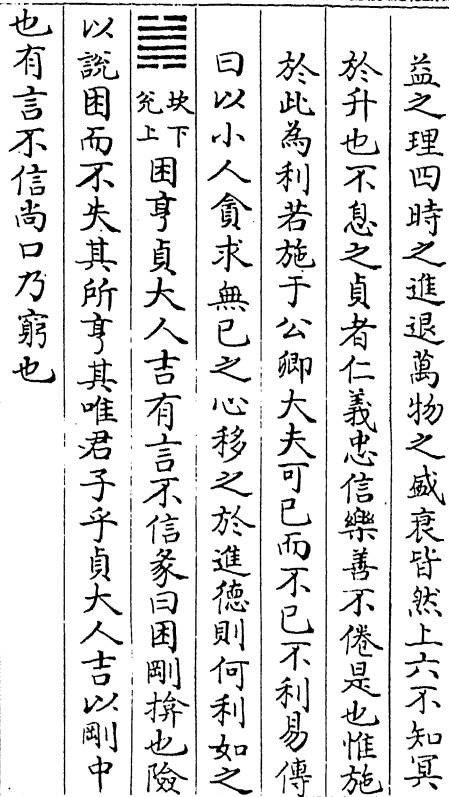 益之理四時之進退萬物之盛衰皆然上六不知冥
於升也不息之貞者仁義忠信樂善不倦是也惟施
於此為利若施于公卿大夫可已而不已不利易傳
曰以小人貪求無已之心移之於進德則何利如之
䷮坎下兊上困亨貞大人吉有言不信彖曰困剛揜也險
以說困而不失其所亨其唯君子乎貞大人吉以剛中
也有言不信尚口乃窮也